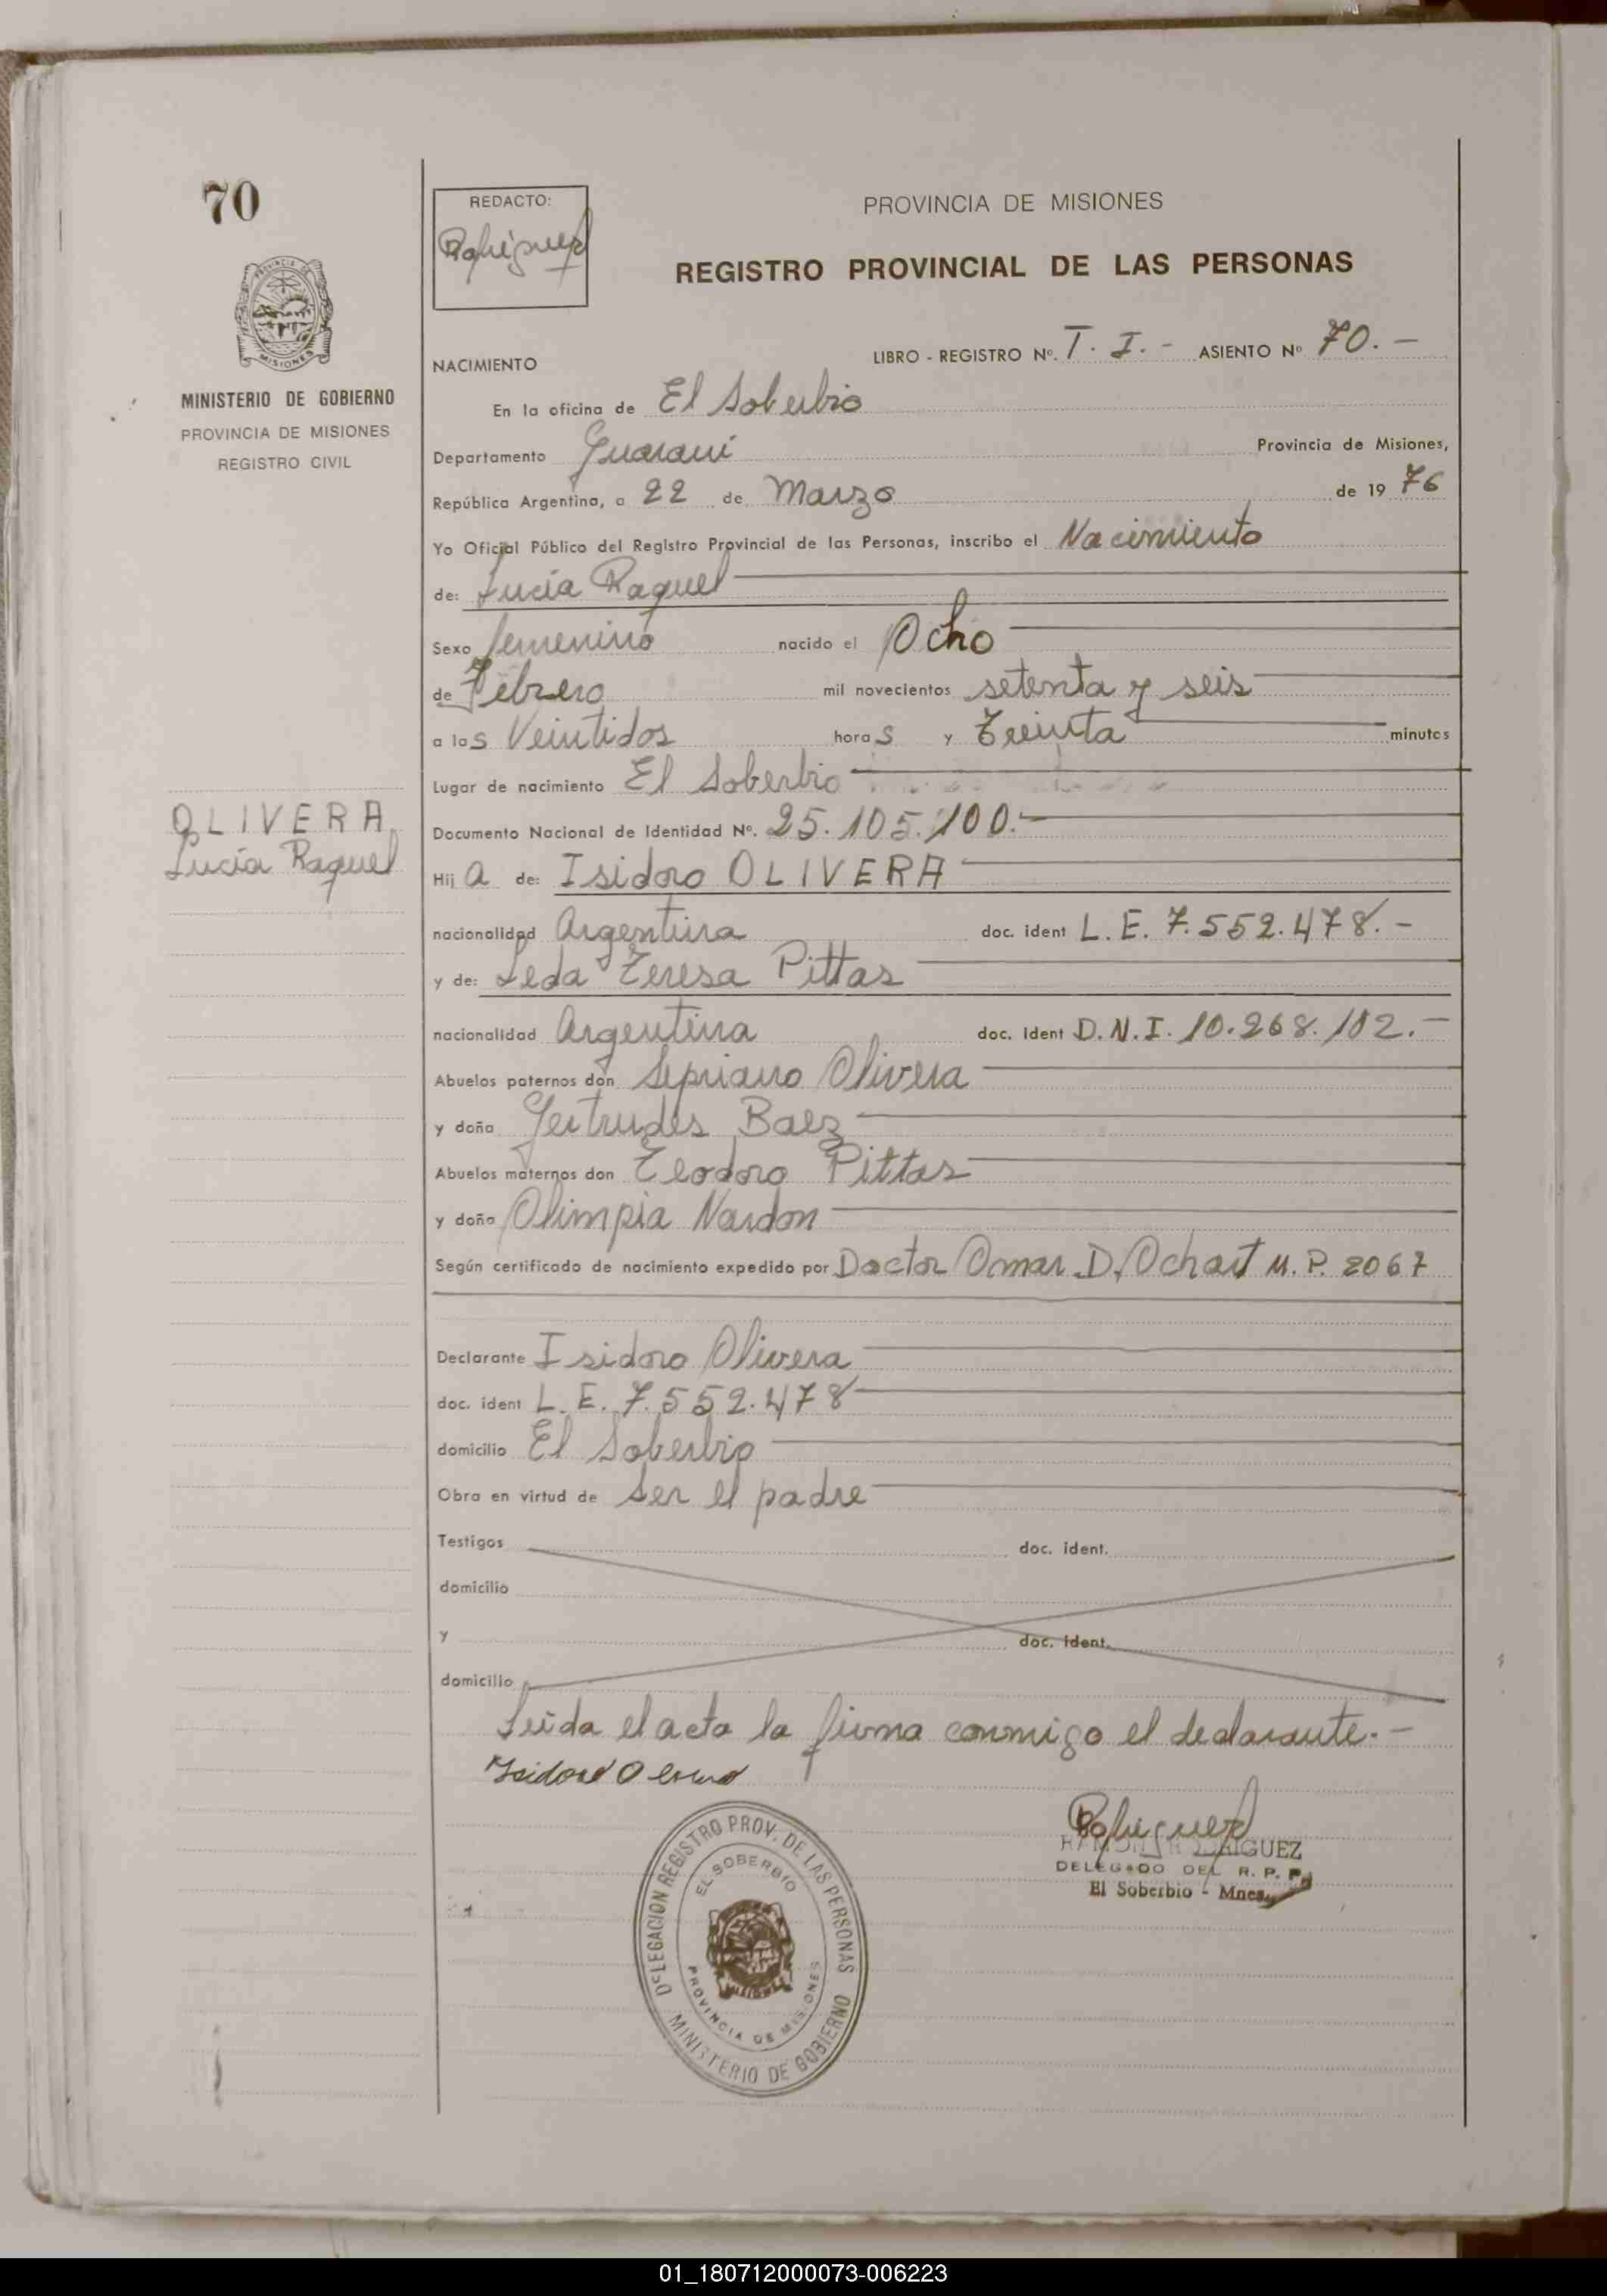 70
REDACTO:
PROVINCIA DE MISIONES
REGISTRO PROVINCIAL DE LAS PERSONAS
PROVINCIA DE
MISIONES
MINISTERIO DE GOBIERNO
PROVINCIA DE MISIONES
REGISTRO CIVIL
NACIMIENTO
LIBRO - REGISTRO Nº. T. I.- ASIENTO Nº 70.-
En la oficina de El Soberbio
Departamento Guaraní Provincia de Misiones,
República Argentina, a 22 de Marzo de 1976
Yo Oficial Público del Registro Provincial de las Personas, inscribo el Nacimiento
de: Lucía Raquel
Sexo femenino nacido el Ocho
de Febrero mil novecientos setenta y seis
a las Veintidos horas y Treinta minutos
Lugar de nacimiento El Soberbio
OLIVERA
Lucía Raquel
Documento Nacional de Identidad Nº. 25.105.100.-
Hija de: Isidoro OLIVERA
nacionalidad Argentina doc. ident L. E. 7.552.478.-
y de: Leda Teresa Pittas
nacionalidad Argentina doc. ident D.N.I. 10.268.102.-
Abuelos paternos don Sipriano Olivera
y doña Gertrudes Baez
Abuelos maternos don Teodoro Pittas
y doña Olimpia Nardon
Según certificado de nacimiento expedido por Doctor Omar D. Ochart M.P. 2067
Declarante Isidoro Olivera
doc. ident L. E. 7.552.478
domicilio El Soberbio
Obra en virtud de ser el padre
Testigos doc. ident.
domicilio
y doc. ident.
domicilio
Leída el acta la firma conmigo el declarante.-
DELEGACION REGISTRO PROV. DE LAS PERSONAS
EL SOBERBIO
MISIONES
PROVINCIA DE MISIONES
MINISTERIO DE GOBIERNO
RAMON RODRIGUEZ
DELEGADO DEL R. P. P.
El Soberbio - Mnes.
01_180712000073-006223